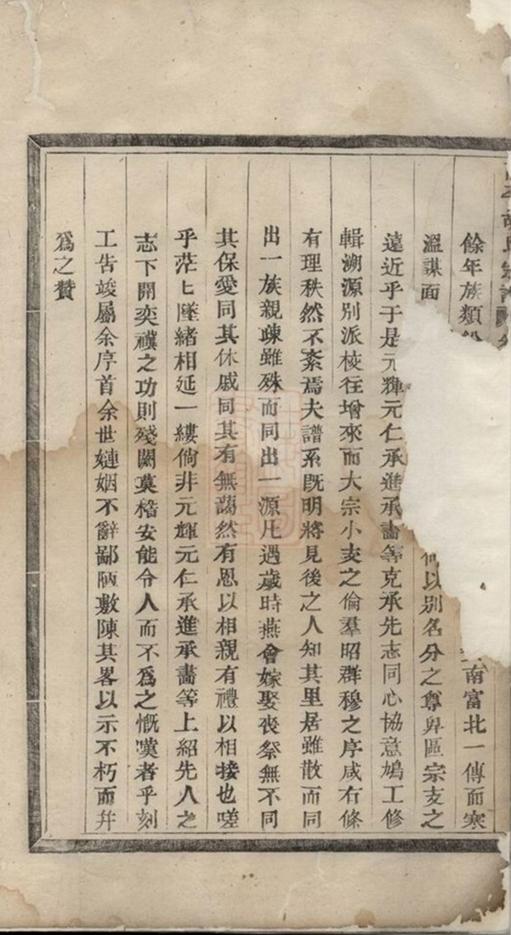 餘年族類
南富北一傳而寒
溫謀面
以別名分之尊卑區宗支之
遠近乎于是元輝元仁承進承書等克承先志同心恊意鳩工修
輯溯源別派校往增來而大宗小支之倫羣昭群穆之序咸有條
有理秩然不紊焉夫譜系旣明將見後之人知其里居雖散而同
出一族親疎雖殊而同出一源凡遇歲時燕會嫁娶喪祭無不同
其保愛同其休戚同其有無藹然有恩以相親有禮以相接也嗟
乎茫匕墜緒相延一縷倘非元輝元仁承進承書等上紹先人之
志下開奕禩之功則殘闕莫稽安能令人而不爲之慨嘆者乎刻
工告竣屬余序首余世嫌姻不辭鄙陋敷陳其畧以示不朽而幷
爲之贊